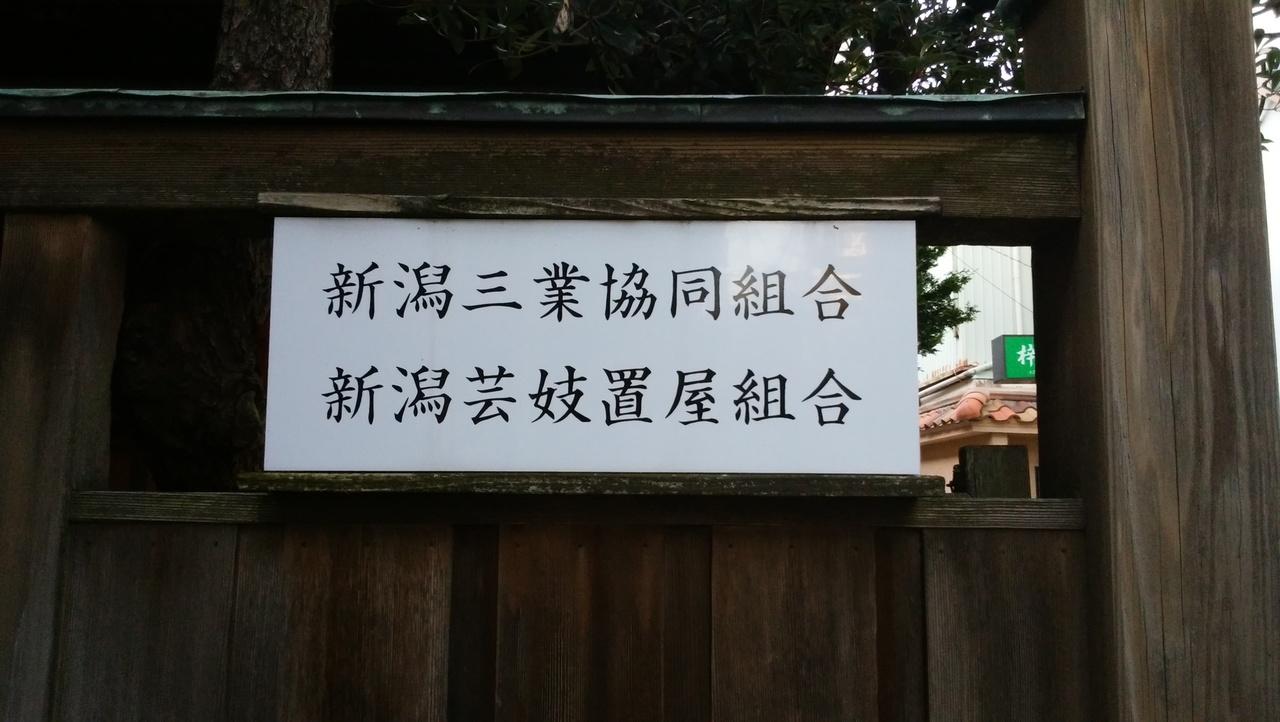 新潟三業協同組合
新潟芸妓置屋組合